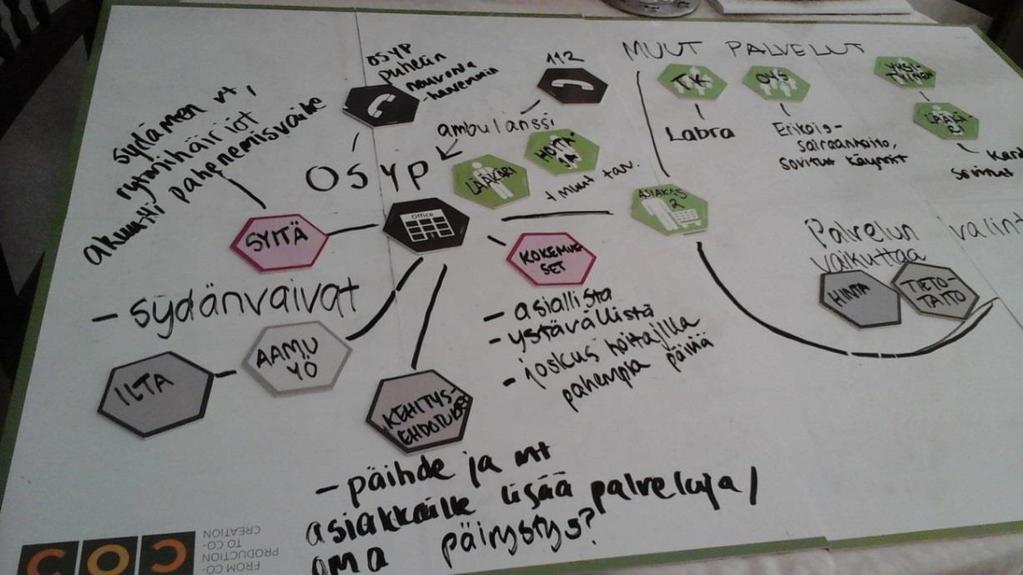 MUUT PALVELUT
OSYP
puhelin
neuvonta
-harvemmin
112
TK
Labra
OYS
Erikois-
sairaanhoito,
sovitut käynnit
sovitut
sydämen vt,
rytmihäiriöt
akuutti pahenemisvaihe
ambulanssi
OSYP
LÄÄKÄRI
HOITA-
JA
+ muut tarv.
Office
ASIAKAS
2
SYITÄ
KOKEMUK
SET
- asiallista
- ystävällistä
- joskus hoitajilla
pahempia päiviä
Palvelun valint
vaikuttaa
HINTA
TIETO-
TAITO
- sydänvaivat
ILTA
AAMU
YÖ
KEHITYS-
EHDOTUKSET
- päihde ja mt
asiakkaille lisää palveluja /
oma päivystys?
COC
FROM CO-
PRODUCTION
TO CO-
CREATION